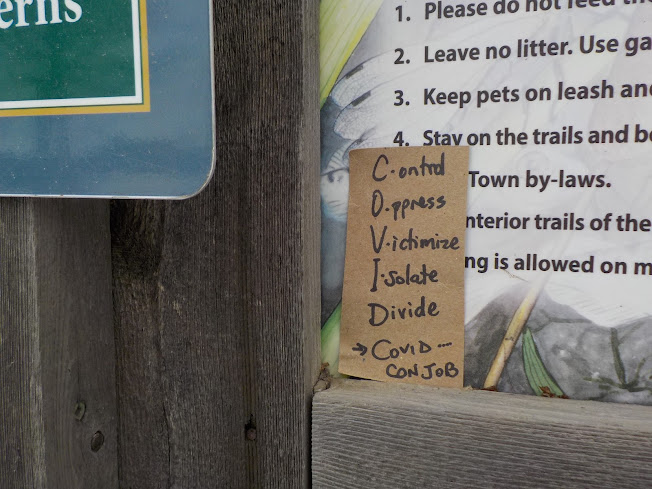 erns
1. Please do not feed the
2. Leave no litter. Use ga
3. Keep pets on leash and
4. Stay on the trails and be
Town by-laws.
nterior trails of the
ng is allowed on m
C.ontrol
O.ppress
V.ictimize
I.solate
Divide
→ COVID ...
CON JOB